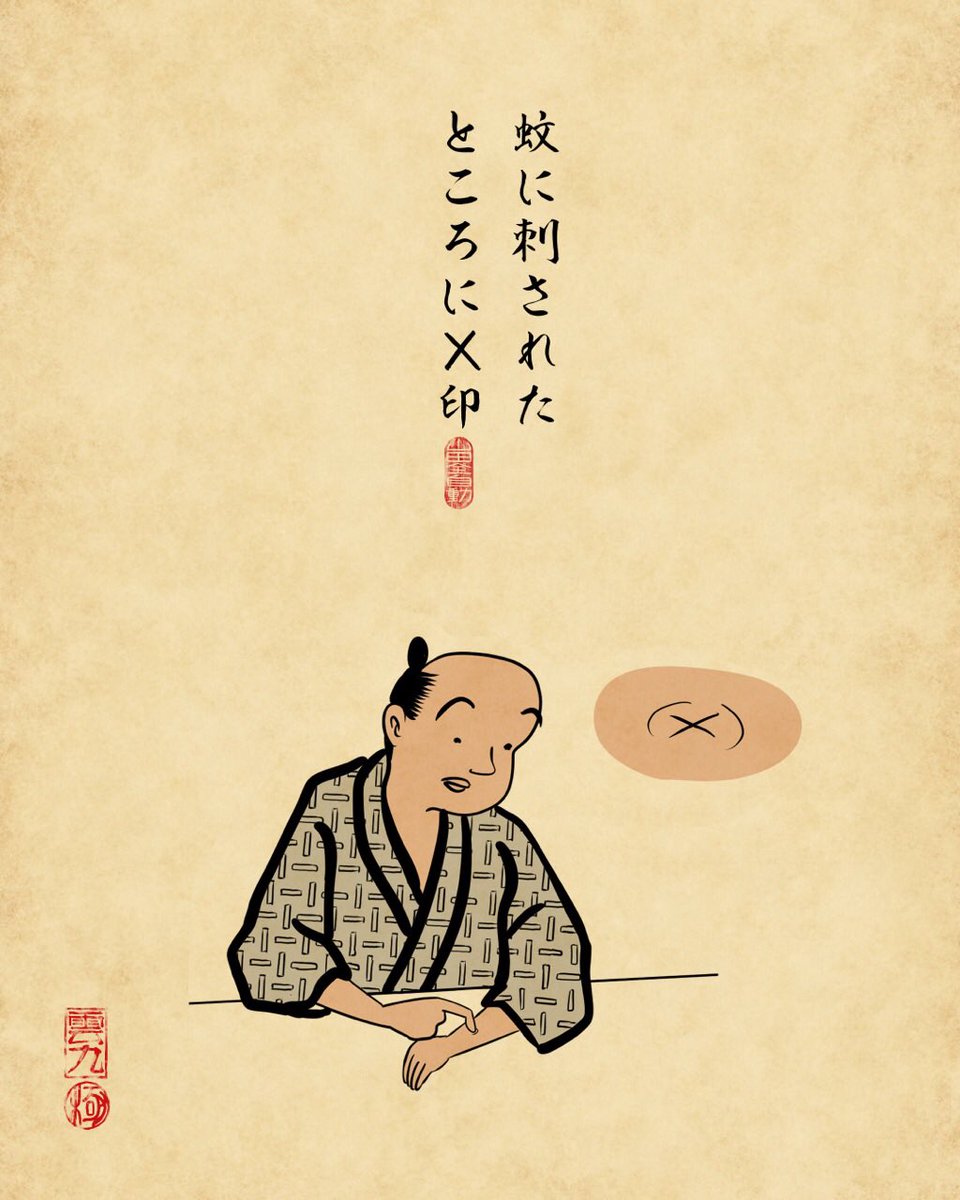 蚊に刺された
ところに×印